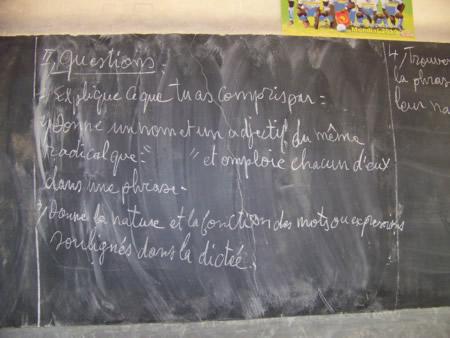 II, Questions:
1, Explique ce que tu as compris par:
2, Donne un nom et un adjectif du même
radical que " " et emploie chacun d'eux
dans une phrase.
3, Donne la nature et la fonction des mots ou expressions
soulignés dans la dictée.
4, Trouver
la phras
leur na
Mondial